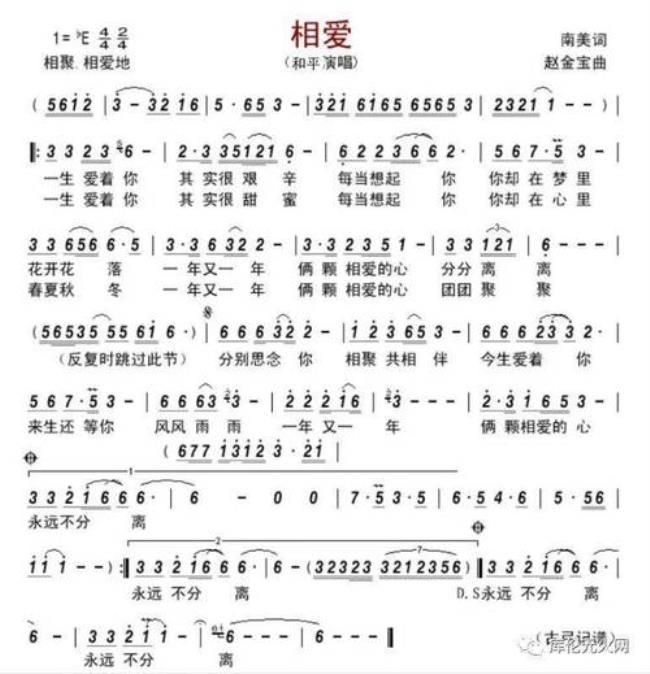 相爱
1=♭E 4/4 2/4
南美词
相聚、相爱地
(和平演唱)
赵金宝曲
(5612 | 3-3216 | 5·653- | 321 6165 6565 3 | 2321 1-) |
|: 3 3 2 3 6- | 2·3 35121 6- | 6 2 2 3 6 6 2· | 5 6 7·5 3- |
一生爱着你 其实很艰辛 每当想起你 你却在梦里
一生爱着你 其实很甜蜜 每当想起你 你却在心里
3 3 656 6·5 | 3·3 6 32 2- | 3·3 2 3 5 1- | 3 3 121 | 6--- |
花开花落 一年又一年 俩颗相爱的心 分分离离
春夏秋冬 一年又一年 俩颗相爱的心 团团聚聚
(56535 55 61 6·) | 6 6 6 32 2- | 1 2 3 65 3- | 6 6 6 2 3 3 2· |
(反复时跳过此节) 分别思念你 相聚共相伴 今生爱着你
5 6 7·5 3- | 6 6 6 63 3- | 2 2 2 16 | 3--- | 2·3 1 6 5 3- |
来生还等你 风风雨雨 一年又一年 俩颗相爱的心
(677 1312 3·21 |
1
3 3 2 1 6 6 6· | 6 - 0 0 | 7·5 3·5 | 6·5 4·6 | 5·56 |
永远不分离
2
7
11 1--) :| 3 3 2 1 6 6 6· | 6-(32323 3212356) | 3 3 2 1 6 6 6· |
永远不分离 D.S永远不分离
6- | 3 3 2 1 1- | 6--- | 6--- ||
永远不分离
(古弓记谱)